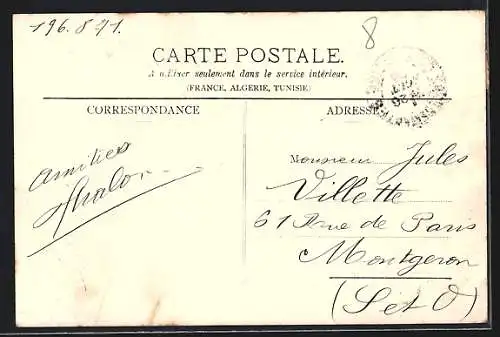 196.871
8
CARTE POSTALE.
A utiliser seulement dans le service intérieur.
(FRANCE, ALGERIE, TUNISIE)
CORRESPONDANCE
ADRESSE
Amitiés
Monsieur Jules
Villette
61 Rue de Paris
Montgeron
(S et O)